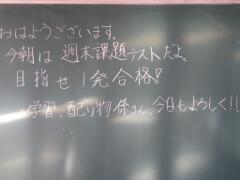 おはようございます。
今朝は週末課題テストだよ。
目指せ1発合格!
学習、配り物係さん、今日もよろしく!!